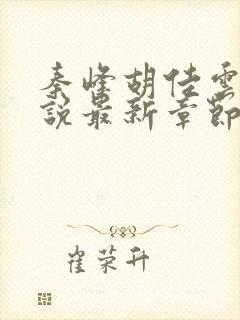 秦峰胡佳雲
說最新章節
崔荣升